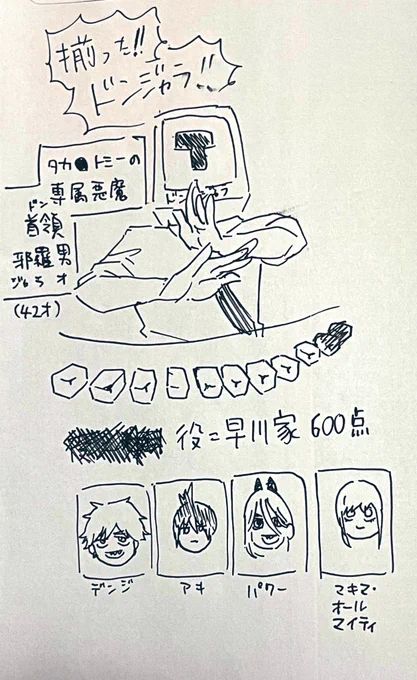 揃った!!
ドンジャラ!!
タカ●トミーの
専属悪魔
ドン
首領
邪羅男
じゃらお
(42才)
役=早川家 600点
デンジ
アキ
パワー
マキマ・
オール
マイティ